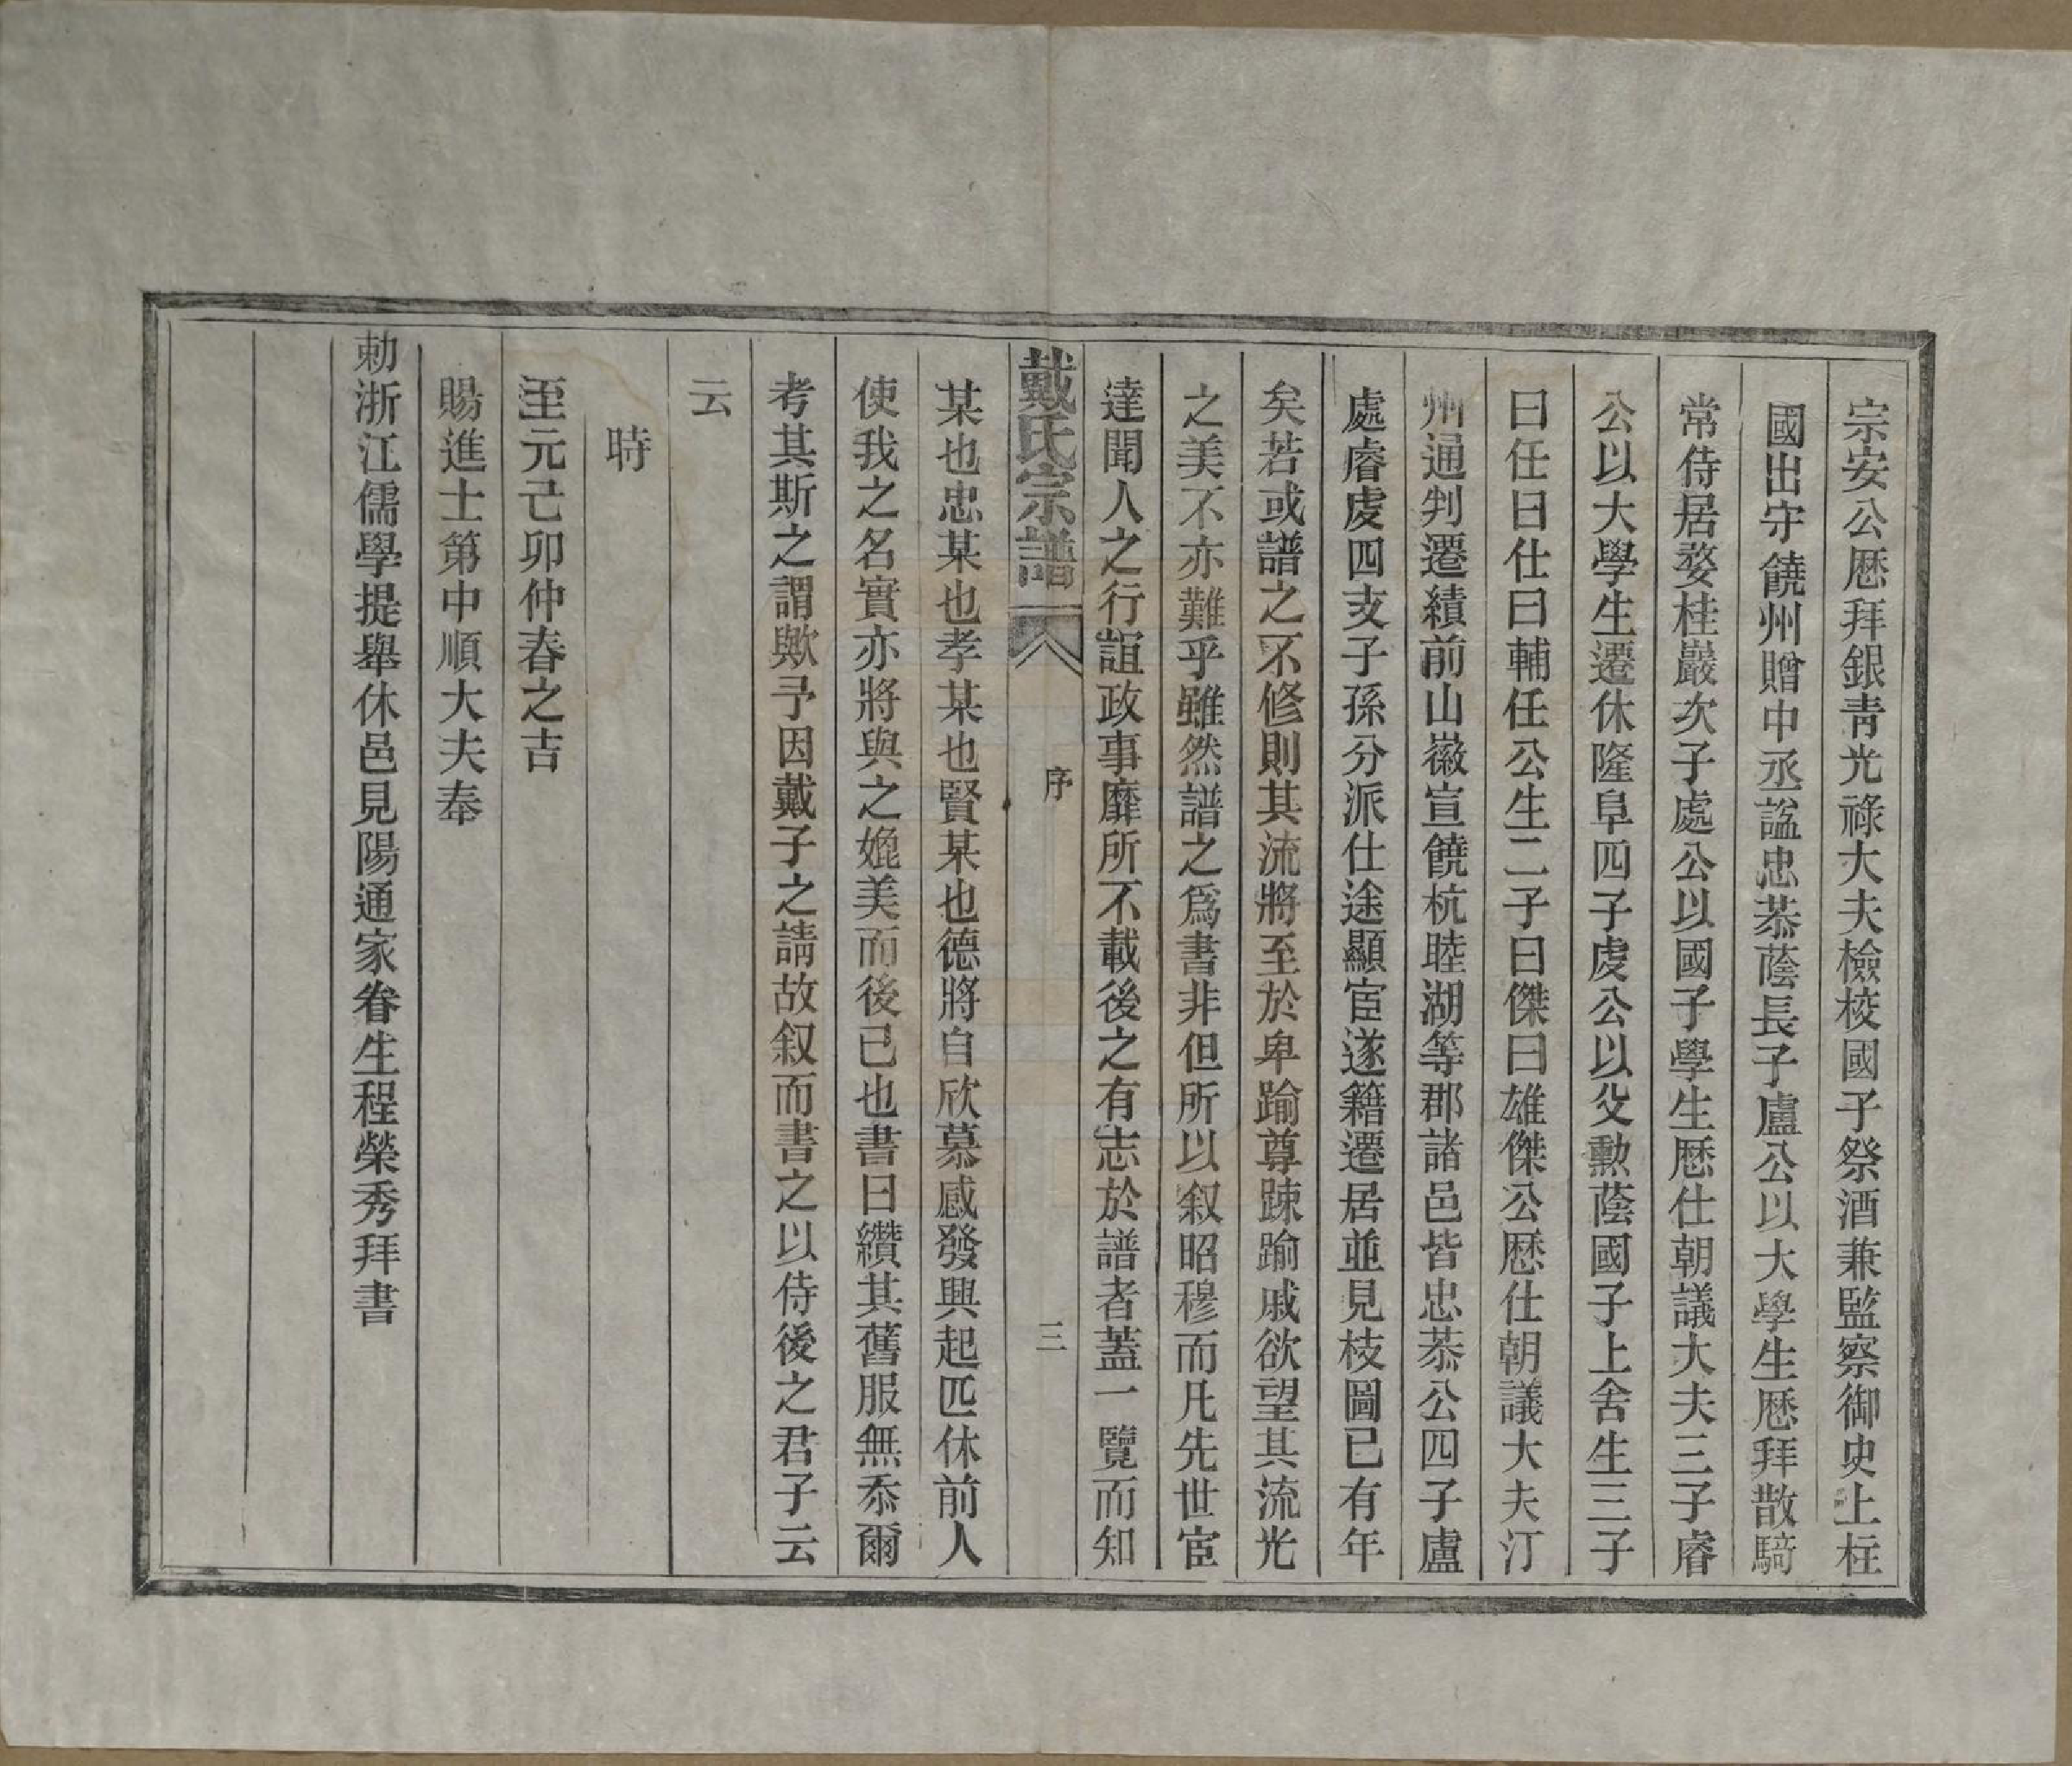 宗安公歷拜銀青光祿大夫檢校國子祭酒兼監察御史上柱
國出守饒州贈中丞謚忠恭蔭長子盧公以大學生歷拜散騎
常侍居婺桂巖次子處公以國子學生歷仕朝議大夫三子睿
公以大學生遷休隆阜四子虔公以父勲蔭國子上舍生三子
曰任曰仕曰輔任公生二子曰傑曰雄傑公歷仕朝議大夫汀
州通判遷績前山徽宣饒杭睦湖等郡諸邑皆忠恭公四子盧
處睿虔四支子孫分派仕途顯宦遂籍遷居並見枝圖已有年
矣若或譜之不修則其流將至於卑踰尊踈踰戚欲望其流光
之美不亦難乎雖然譜之為書非但所以叙昭穆而凡先世宦
達聞人之行誼政事靡所不載後之有志於譜者蓋一覽而知
戴氏宗譜 序 三
某也忠某也孝某也賢某也德將自欣慕感發興起匹休前人
使我之名實亦將與之媲美而後已也書曰纘其舊服無忝爾
考其斯之謂歟予因戴子之請故叙而書之以侍後之君子云
云
時
至元己卯仲春之吉
賜進士第中順大夫奉
勅浙江儒學提舉休邑見陽通家眷生程榮秀拜書